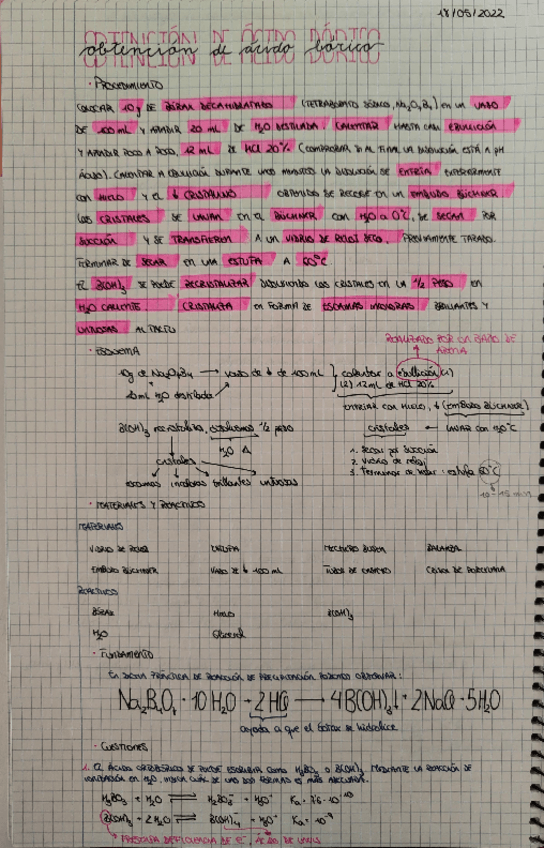 18/05/2022
OBTENCIÓN DE ÁCIDO BÓRICO
obtención de ácido bórico
· PROCEDIMIENTO
COLOCAR 10g DE BÓRAX DECAHIDRATADO (TETRABORATO SÓDICO, Na₂O₇B₄) EN UN VASO
DE 100 mL Y AÑADIR 20 mL DE H₂O DESTILADA CALENTAR HASTA CASI EBULLICIÓN
Y AÑADIR POCO A POCO, 12 mL DE HCl 20% (COMPROBAR SI AL FINAL LA DISOLUCIÓN ESTÁ A pH
ÁCIDO). CALENTAR A EBULLICIÓN DURANTE UNOS MINUTOS LA DISOLUCIÓN SE ENFRÍA EXTERIORMENTE
CON HIELO Y EL ↓ CRISTALINO OBTENIDO SE RECOGE EN UN EMBUDO BÜCHNER.
LOS CRISTALES SE LAVAN EN EL BÜCHNER CON H₂O A 0°C, SE SECAN POR
SUCCIÓN Y SE TRANSFIEREN A UN VIDRIO DE RELOJ SECO, PREVIAMENTE TARADO.
TERMINAR DE SECAR EN UNA ESTUFA A 60°C
EL B(OH)₃ SE PUEDE RECRISTALIZAR DISOLVIENDO LOS CRISTALES EN LA ½ PESO EN
H₂O CALIENTE. CRISTALIZA EN FORMA DE ESCAMAS INCOLORAS BRILLANTES Y
UNTUOSAS AL TACTO
REALIZADO POR UN BAÑO DE
ARENA
· ESQUEMA
10g de Na₂O₇B₄ → vaso de ↓ de 100 mL } calentar a ebullición (1)
20mL H₂O destilada (2) 12 mL de HCl 20%
ENFRIAR CON HIELO, ↓ (EMBUDO BÜCHNER)
B(OH)₃ recristaliza, disolvemos ½ peso cristales ← LAVAR CON H₂O°C
H₂O Δ
1. SECAR POR SUCCIÓN
cristales 2. VIDRIO DE RELOJ
3. TERMINAR DE SECAR: estufa 60°C
escamas incoloras brillantes untuosas
10-15 min
· MATERIALES Y REACTIVOS
MATERIALES
VIDRIO DE RELOJ ESTUFA MECHERO BUNSEN BALANZA
EMBUDO BÜCHNER VASO DE ↓ 100 mL TUBOS DE ENSAYO
REACTIVOS
BÓRAX HIELO B(OH)₃
H₂O Glicerol
· FUNDAMENTO
EN DICHA PRÁCTICA DE REACCIÓN DE PRECIPITACIÓN PODEMOS OBSERVAR:
Na₂B₄O₇ · 10 H₂O + 2 HCl → 4B(OH)₃↓ + 2 NaCl + 5H₂O
ayuda a que el bórax se hidrolice
· CUESTIONES
1. EL ÁCIDO ORTOBÓRICO SE PUEDE ESCRIBIR COMO H₃BO₃ O B(OH)₃. MEDIANTE LA REACCIÓN DE
IONIZACIÓN EN H₂O, INDICA CUÁL DE LAS DOS FORMAS ES MÁS ADECUADA.
H₃BO₃ + H₂O ⇌ H₂BO₃⁻ + H₃O⁺
B(OH)₃ + 2H₂O ⇌ B(OH)₄⁻ + H₃O⁺
PRESENTA DEFICIENCIA DE e⁻, ÁCIDO DE LEWIS